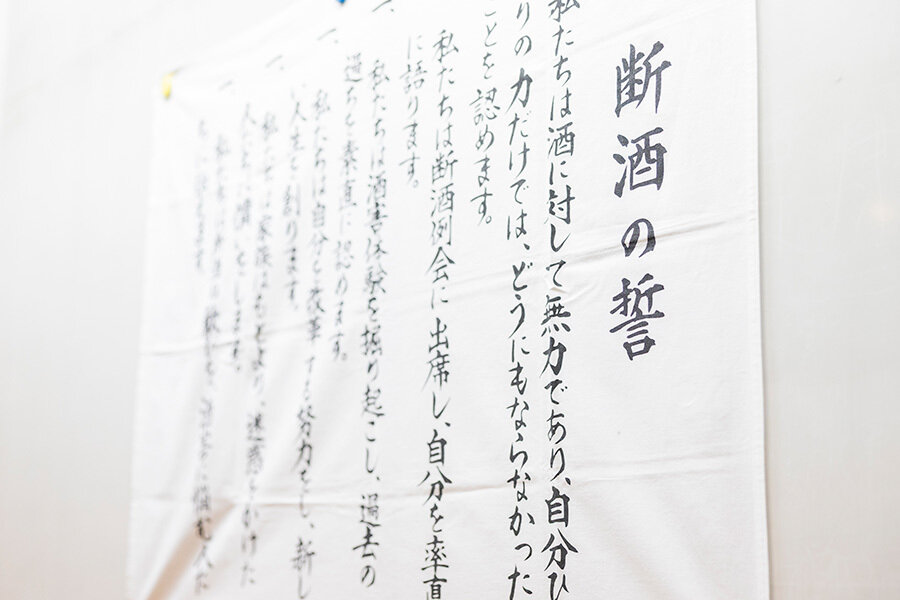 断酒の誓
私たちは酒に対して無力であり、自分ひ
りの力だけでは、どうにもならなかった
ことを認めます。
一、
私たちは断酒例会に出席し、自分を率直
に語ります。
一、
私たちは酒害体験を掘り起こし、過去の
過ちを素直に認めます。
一、
私たちは自分を改革する努力をし、新し
人生を創ります。
一、
私たちは家族はもとより、迷惑をかけた
人に償いをします。